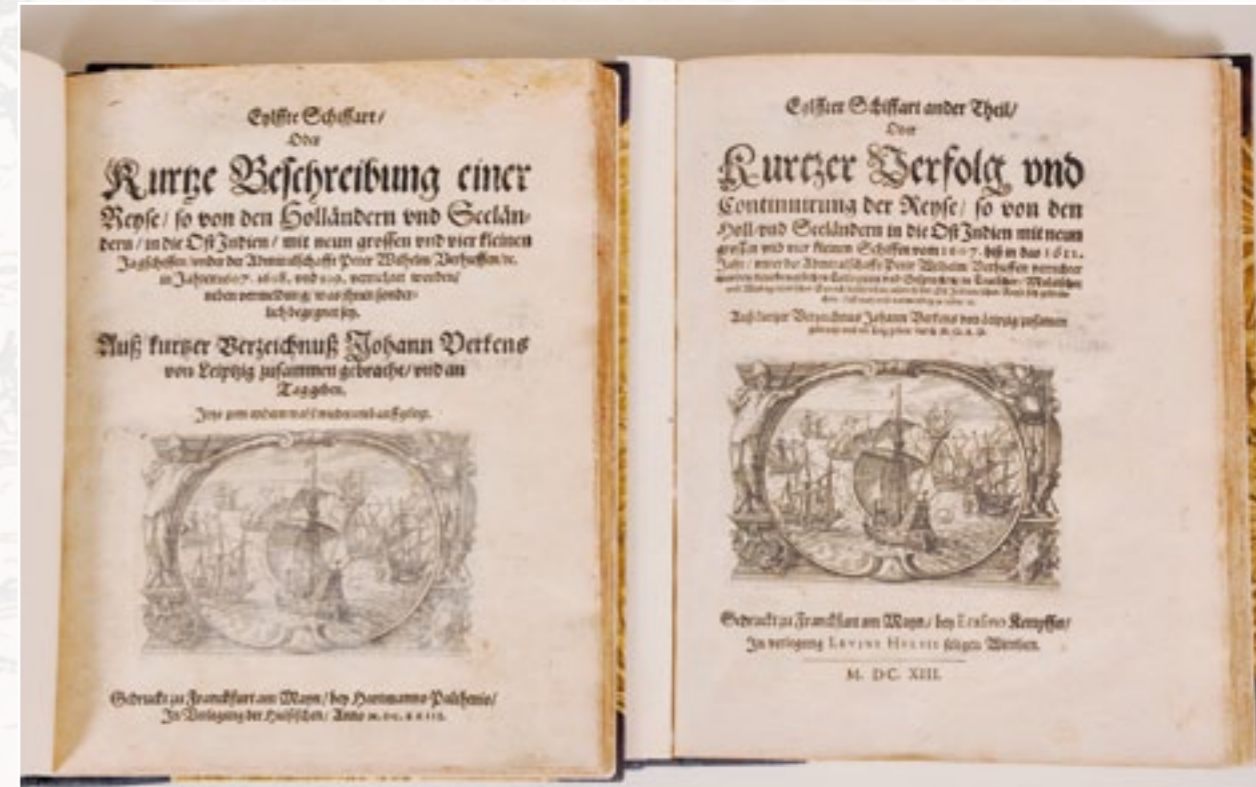 Eylffte Schiffart/
Oder
Kurtze Beschreibung einer
Reyse/ so von den Holländern vnd Seelän-
dern/ in die Ost Indien/ mit neun grossen vnd vier kleinen
Jagschiffen/ vnder der Admiralschafft Peter Wilhelm Verhuffen/ ec.
in Jahren 1607. 1608. vnd 1609. verrichtet worden/
neben vermeldung/ was ihnen sonder-
lich begegnet sey.
Auß kurtzer Verzeichnuß Johann Verkens
von Leiptzig zusammen gebracht/ vnd an
Tag geben.
Jetzo zum andern mahl wiederumb auffgelegt.
Gedruckt zu Franckfurt am Mayn/ bey Hartmanno Palthenio/
In Verlegung der Hulsischen/ Anno
Eylffter Schiffart ander Theil/
Oder
Kurtzer Verfolg vnd
Continuirung der Reyse/ so von den
Holl- vnd Seeländern in die Ost Indien mit neun
grossen vnd vier kleinen Schiffen vom 1607. biß in das 1612.
Jahr/ vnter der Admiralschafft Peter Wilhelm Verhuffen verrichtet
Auß kurtzer Verzeichnus Johann Verkens von Leipzig zusammen
Gedruckt zu Franckfurt am Mayn/ bey Erasmo Kempffer/
In verlegung LEVINI HULSII seligen Wittiben.
M. DC. XIII.